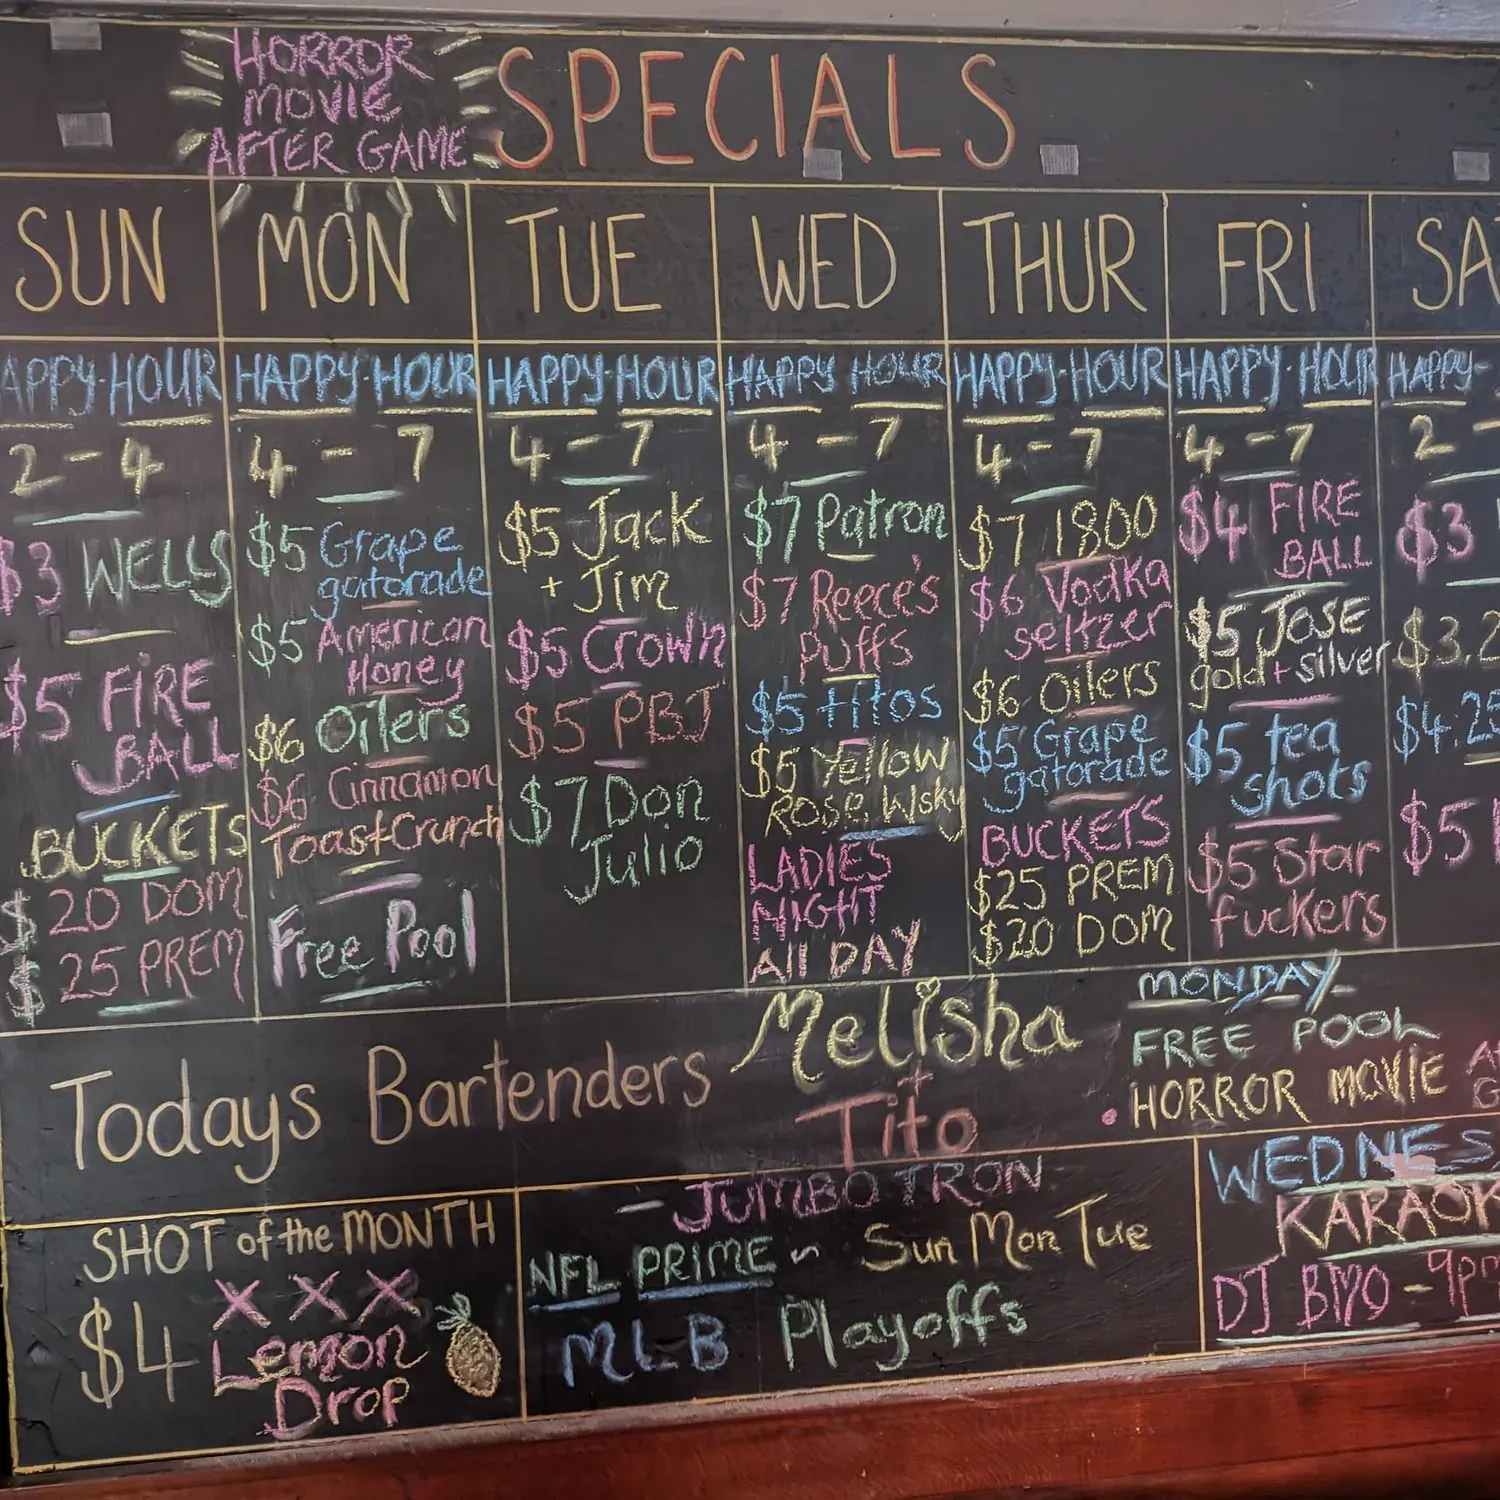 HORROR
MOVIE
AFTER GAME
SPECIALS
SUN
APPY-HOUR
2-4
$3 WELLS
$5 FIRE
BALL
BUCKETS
$20 DOM
$25 PREM
MON
HAPPY-HOUR
4-7
$5 Grape
gatorade
$5 American
Honey
$6 Oilers
$6 Cinnamon
Toast Crunch
Free Pool
TUE
HAPPY-HOUR
4-7
$5 Jack
+ Jim
$5 Crown
$5 PBJ
$7 Don
Julio
WED
HAPPY HOUR
4-7
$7 Patron
$7 Reece's
Puffs
$5 titos
$5 Yellow
ROSE Wsky
LADIES
NIGHT
All DAY
THUR
HAPPY-HOUR
4-7
$7 1800
$6 Vodka
seltzer
$6 Oilers
$5 Grape
gatorade
BUCKETS
$25 PREM
$20 DOM
FRI
HAPPY-HOUR
4-7
$4 FIRE
BALL
$5 JOSE
gold+silver
$5 tea
shots
$5 Star
fuckers
SA
HAPPY-
2-
$3
$3.2
$4.25
$5
Todays Bartenders
Melisha
+
Tito
MONDAY
FREE POOL
• HORROR MOVIE
SHOT of the MONTH
XXX
$4 Lemon
Drop
- JUMBOTRON
NFL PRIME ~ Sun Mon Tue
MLB Playoffs
WEDNES
KARAOK
DJ BMO - 9pm